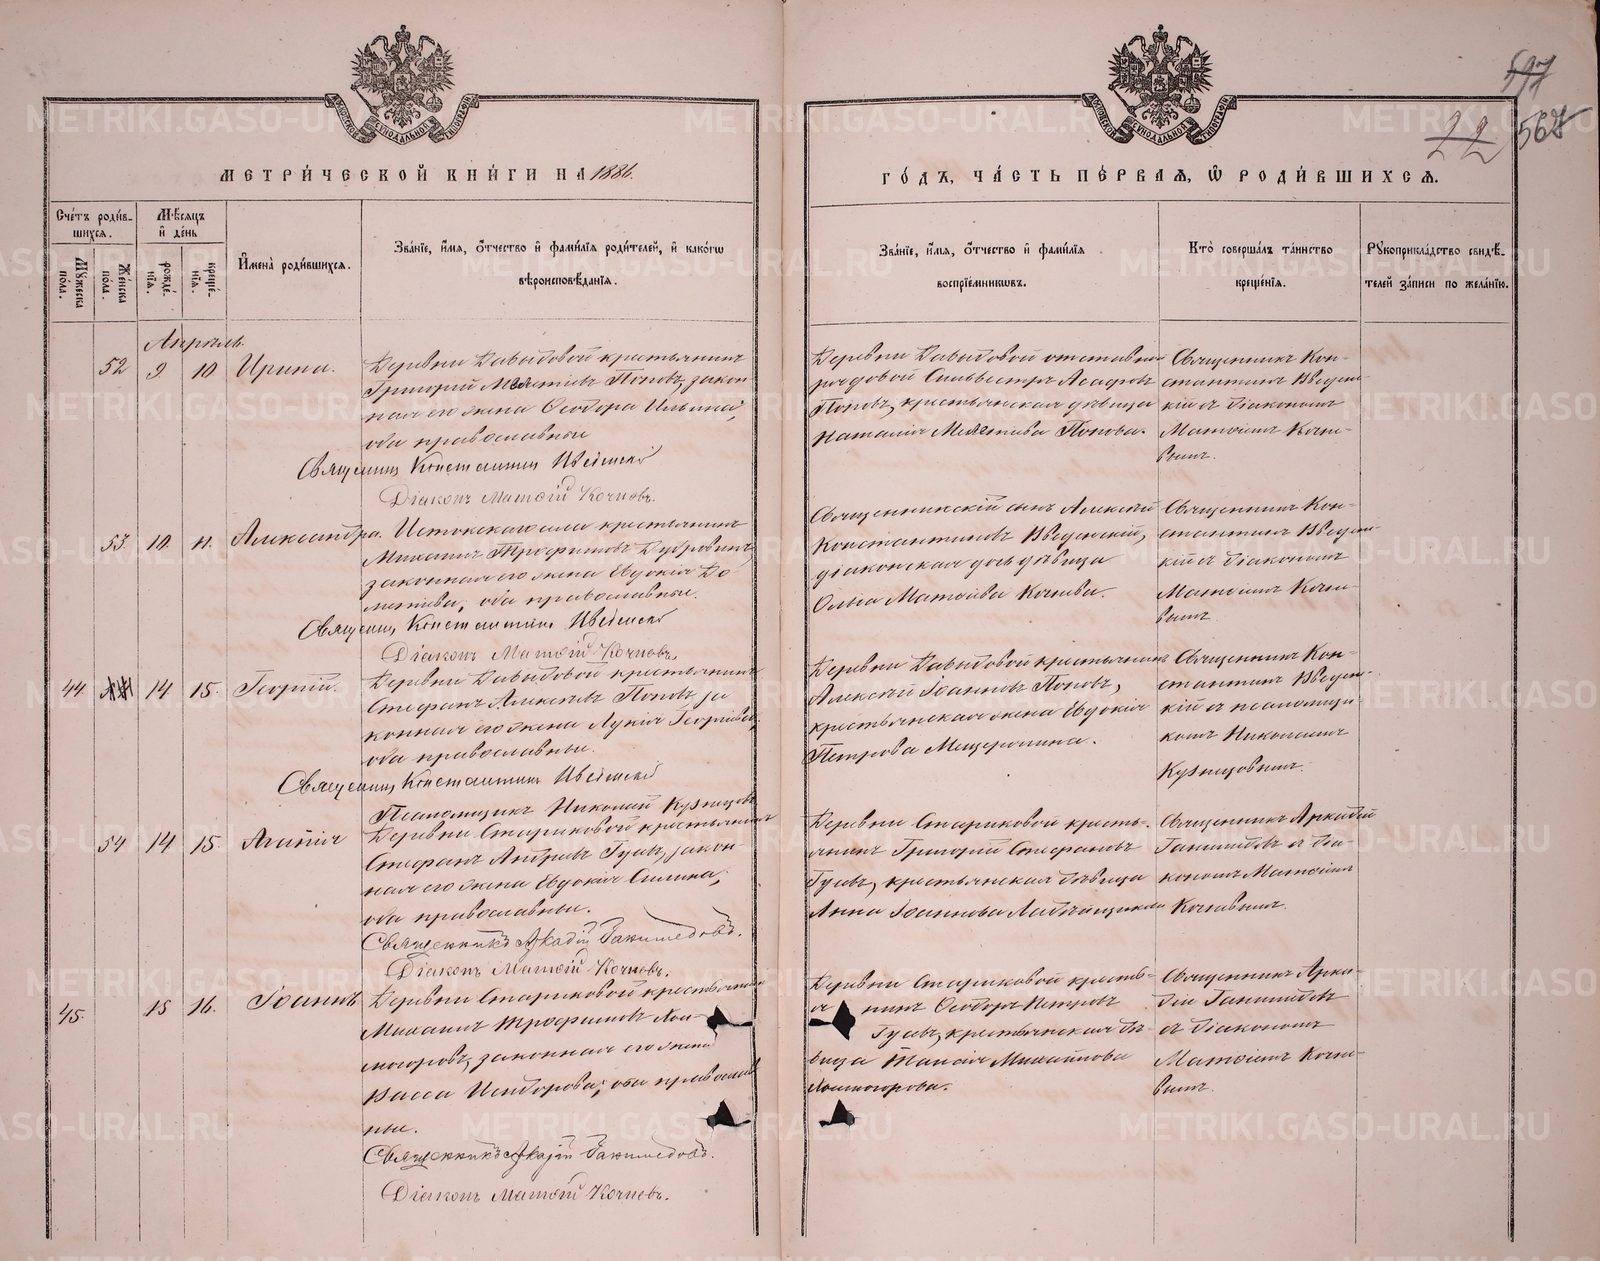 597
22 568
МЕТРИ́ЧЕСКОЙ КНИ́ГИ НА 1886.
ГО́ДЪ, ЧА́СТЬ ПЕ́РВАѦ, Ѿ РОДИ́ВШИХСѦ.
Сче́тъ роди́в-
шихсѧ.
Мѣсѧцъ
и҆ де́нь
Мꙋжеска по́ла.
Же́нска по́ла.
рожде́-нїѧ.
креще́-нїѧ.
И҆мена̀ роди́вшихсѧ.
Зва́нїе, и҆́мѧ, ѻ҆́тчество и҆ фами́лїѧ роди́телей, и҆ како́гѡ
вѣроисповѣ́данїѧ.
Зва́нїе, и҆́мѧ, ѻ҆́тчество и҆ фами́лїѧ
воспрїе́мникѡвъ.
Кто̀ соверша́лъ та́инство
креще́нїѧ.
Рꙋкоприкла́дство свидѣ́-
телей за́писи по жела́нїю.
Апрѣль
52 9 10 Ирина.
Деревни Давыдовой крестьянинъ
Григорій Мелетіевъ Поповъ, закон-
ная его жена Ѳеодора Ильина,
оба православные
Священникъ Константинъ Введенскій
Діаконъ Матѳій Кочневъ.
Деревни Давыдовой отставной
рядовой Сильвестръ Асафовъ
Поповъ, крестьянская дѣвица
Наталія Мелетіева Попова.
Священникъ Кон-
стантинъ Введен-
скій съ діакономъ
Матѳіемъ Кочне-
вымъ.
53 10 11. Александра.
Истокскаго села крестьянинъ
Михаилъ Трофимовъ Дубровинъ,
законная его жена Евдокія До-
метіева, оба православные.
Священникъ Константинъ Введенскій
Діаконъ Матѳій Кочневъ.
Священническій сынъ Алексѣй
Константиновъ Введенскій,
діаконская дочь дѣвица
Ольга Матѳіева Кочнева.
Священникъ Кон-
стантинъ Введен-
скій съ діакономъ
Матѳіемъ Кочне-
вымъ.
44 14 15. Георгій.
Деревни Давыдовой крестьянинъ
Стефанъ Алексѣевъ Поповъ, за
конная его жена Лукія Георгіева,
оба православные.
Священникъ Константинъ Введенскій
Псаломщикъ Николай Кузнецовъ
Деревни Давыдовой крестьянинъ
Алексѣй Іоанновъ Поповъ,
крестьянская жена Евдокія
Петрова Мещерягина.
Священникъ Кон-
стантинъ Введен-
скій съ псаломщи-
комъ Николаемъ
Кузнецовымъ.
54 14 15. Агапія
Деревни Стариковой крестьянинъ
Стефанъ Андреевъ Гусевъ, закон-
ная его жена Евдокія Силина,
оба православные.
Священникъ Аркадій Гакишедовъ.
Діаконъ Матѳій Кочневъ.
Деревни Стариковой кресть-
янинъ Григорій Стефановъ
Гусевъ, крестьянская дѣвица
Анна Іоаннова
Священникъ Аркадій
съ діа-
кономъ Матѳіемъ
Кочневымъ.
45. 15 16. Іоаннъ
Деревни Стариковой крестьянинъ
Михаилъ Трофимовъ Хол-
могоровъ, законная его жена
Васса Исидорова, оба православ
ные.
Священникъ Аркадій
Діаконъ Матѳій Кочневъ.
Деревни Стариковой кресть-
янинъ Ѳеодоръ Петровъ
Гусевъ, крестьянская дѣ-
вица Таисія Михайлова
Холмогорова.
Священникъ Арка-
дій
съ діакономъ
Матѳіемъ Кочне-
вымъ.
METRIKI.GASO-URAL.RU